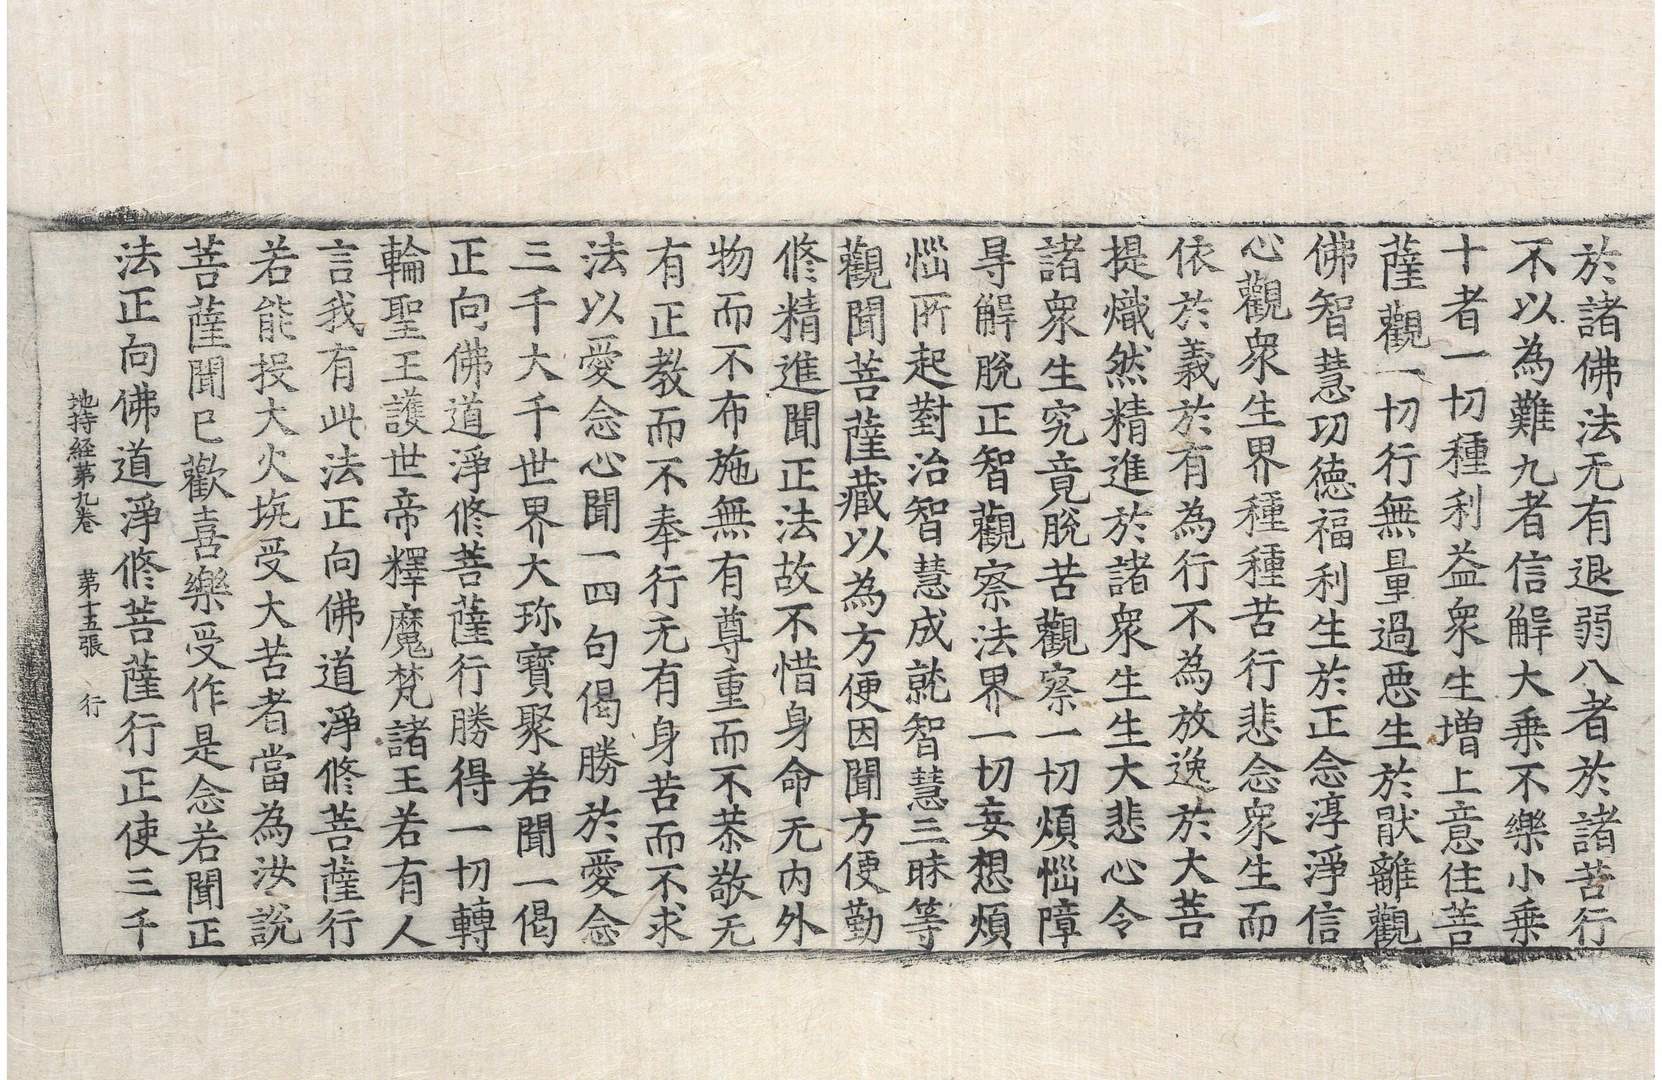 於諸佛法无有退弱八者於諸苦行
不以為難九者信解大乗不樂小乗
十者一切種利益衆生増上意住菩
薩觀一切行無量過惡生於猒離觀
佛智慧功德福利生於正念淳淨信
心觀衆生界種種苦行悲念衆生而
依於義於有為行不為放逸於大菩
提熾然精進於諸衆生生大悲心令
諸衆生究竟脫苦觀察一切煩惱障
㝵解脫正智觀察法界一切妄想煩
惱所起對治智慧成就智慧三昧等
觀聞菩薩藏以為方便因聞方便勤
修精進聞正法故不惜身命无内外
物而不布施無有尊重而不恭敬无
有正教而不奉行无有身苦而不求
法以愛念心聞一四句偈勝於愛念
三千大千世界大珎寶聚若聞一偈
正向佛道淨修菩薩行勝得一切轉
輪聖王護世帝釋魔梵諸王若有人
言我有此法正向佛道淨修菩薩行
若能投大火坑受大苦者當為汝說
菩薩聞已歡喜樂受作是念若聞正
法正向佛道淨修菩薩行正使三千
地持経第九卷 第十五張 行